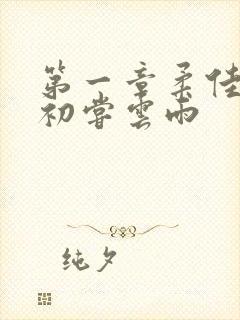 第一章柔佳
初尝雲雨
纯夕